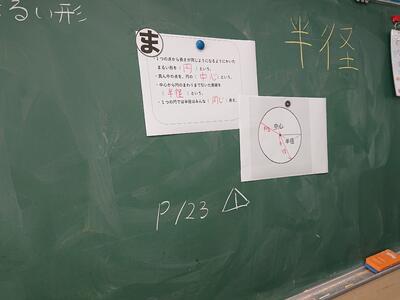 まるい形
半径
ま
1つの点から長さが同じようになるようにかいた
まるい形を(円)という。
・真ん中の点を、円の(中心)という。
・中心から円のまわりまで引いた直線を
(半径)という。
・1つの円では半径はみんな(同じ)長さ。
中心
半径
P123 △1